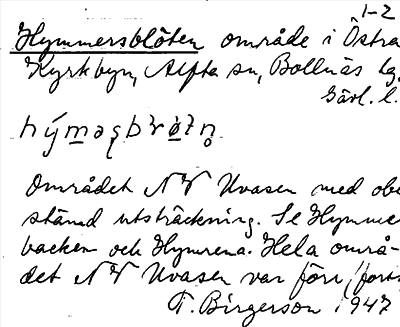 1-2
Hymmersblöten område i Östra
Kyrkbyn, Alfta sn, Bollnäs tg.
Gävl. l.
hýməʂbrøtn̥
Området NV Uvasen med obe
stämd utsträckning. Se Hymmer
backen och Hymrena. Hela områ-
det NV Uvasen var förr (forts
T. Birgerson 1947